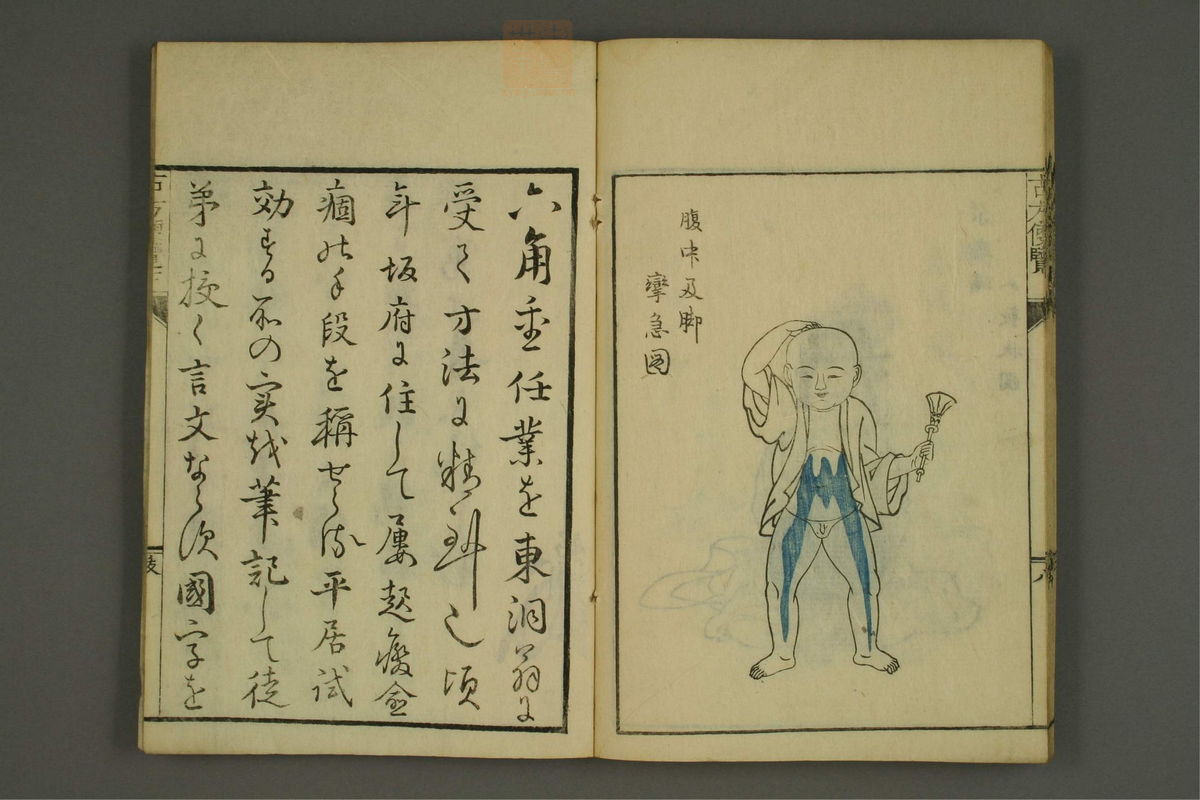 古方便覽
八
腹中及脚
攣急図
六角重任業を東洞翁に
受て方法に精 也頃
年坂府に住して屢起癈愈
痼の手段を稱せらる平居試
効する所の実を筆記して徒
弟に授く言文ならす國字を
跋